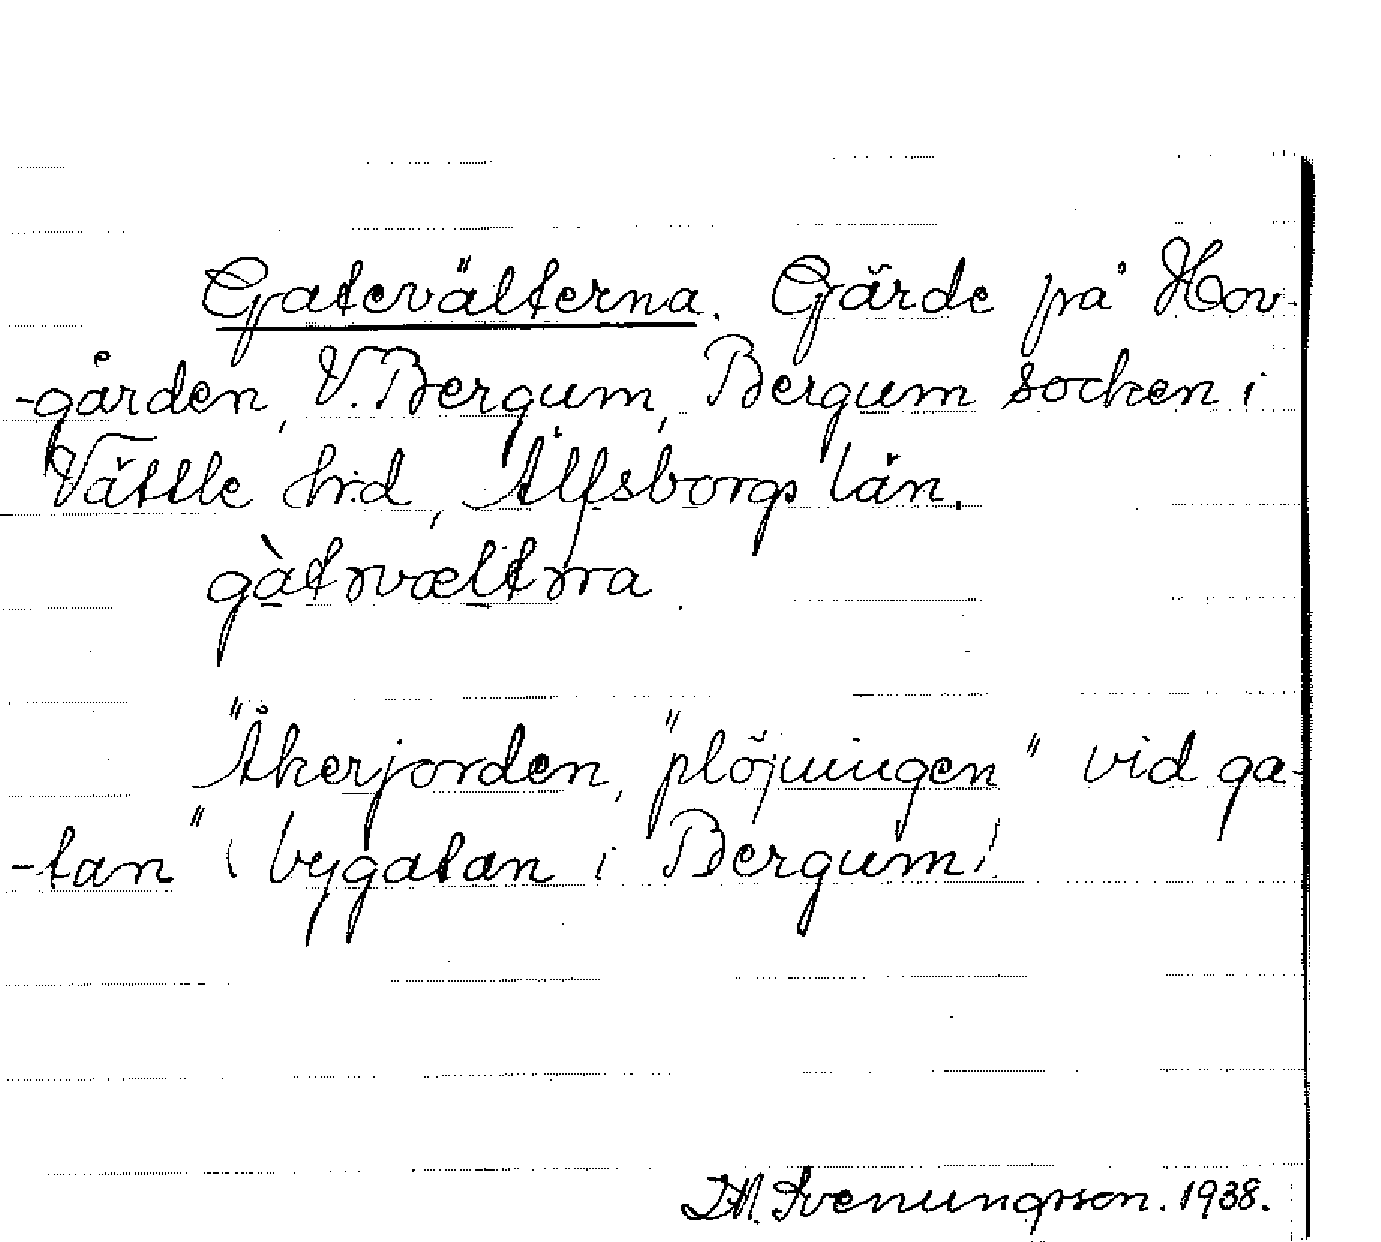 Gatevälterna. Gärde på Hov-
-gården, V. Bergum, Bergum socken i
Vättle hrd, Älfsborgs län.
"Åkerjorden, "plöjningen" vid ga-
-tan" (bygatan i Bergum)
Svenungsson. 1938.